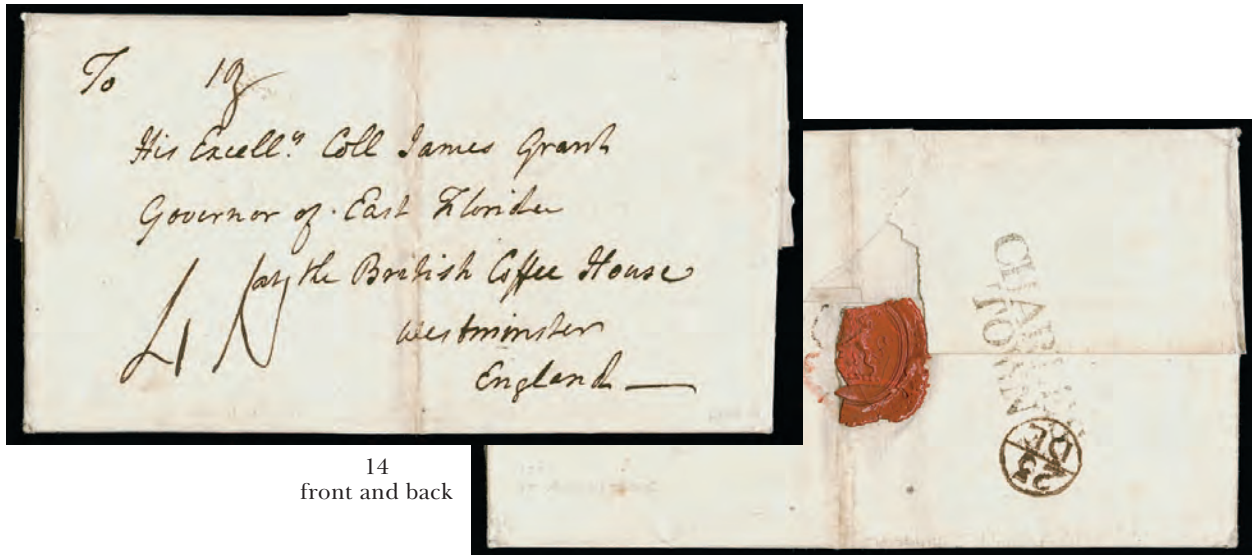 To
His Excell.y Coll James Grant
Governor of East Florida
at the British Coffee House
Westminster
England
14
front and back
TOWN